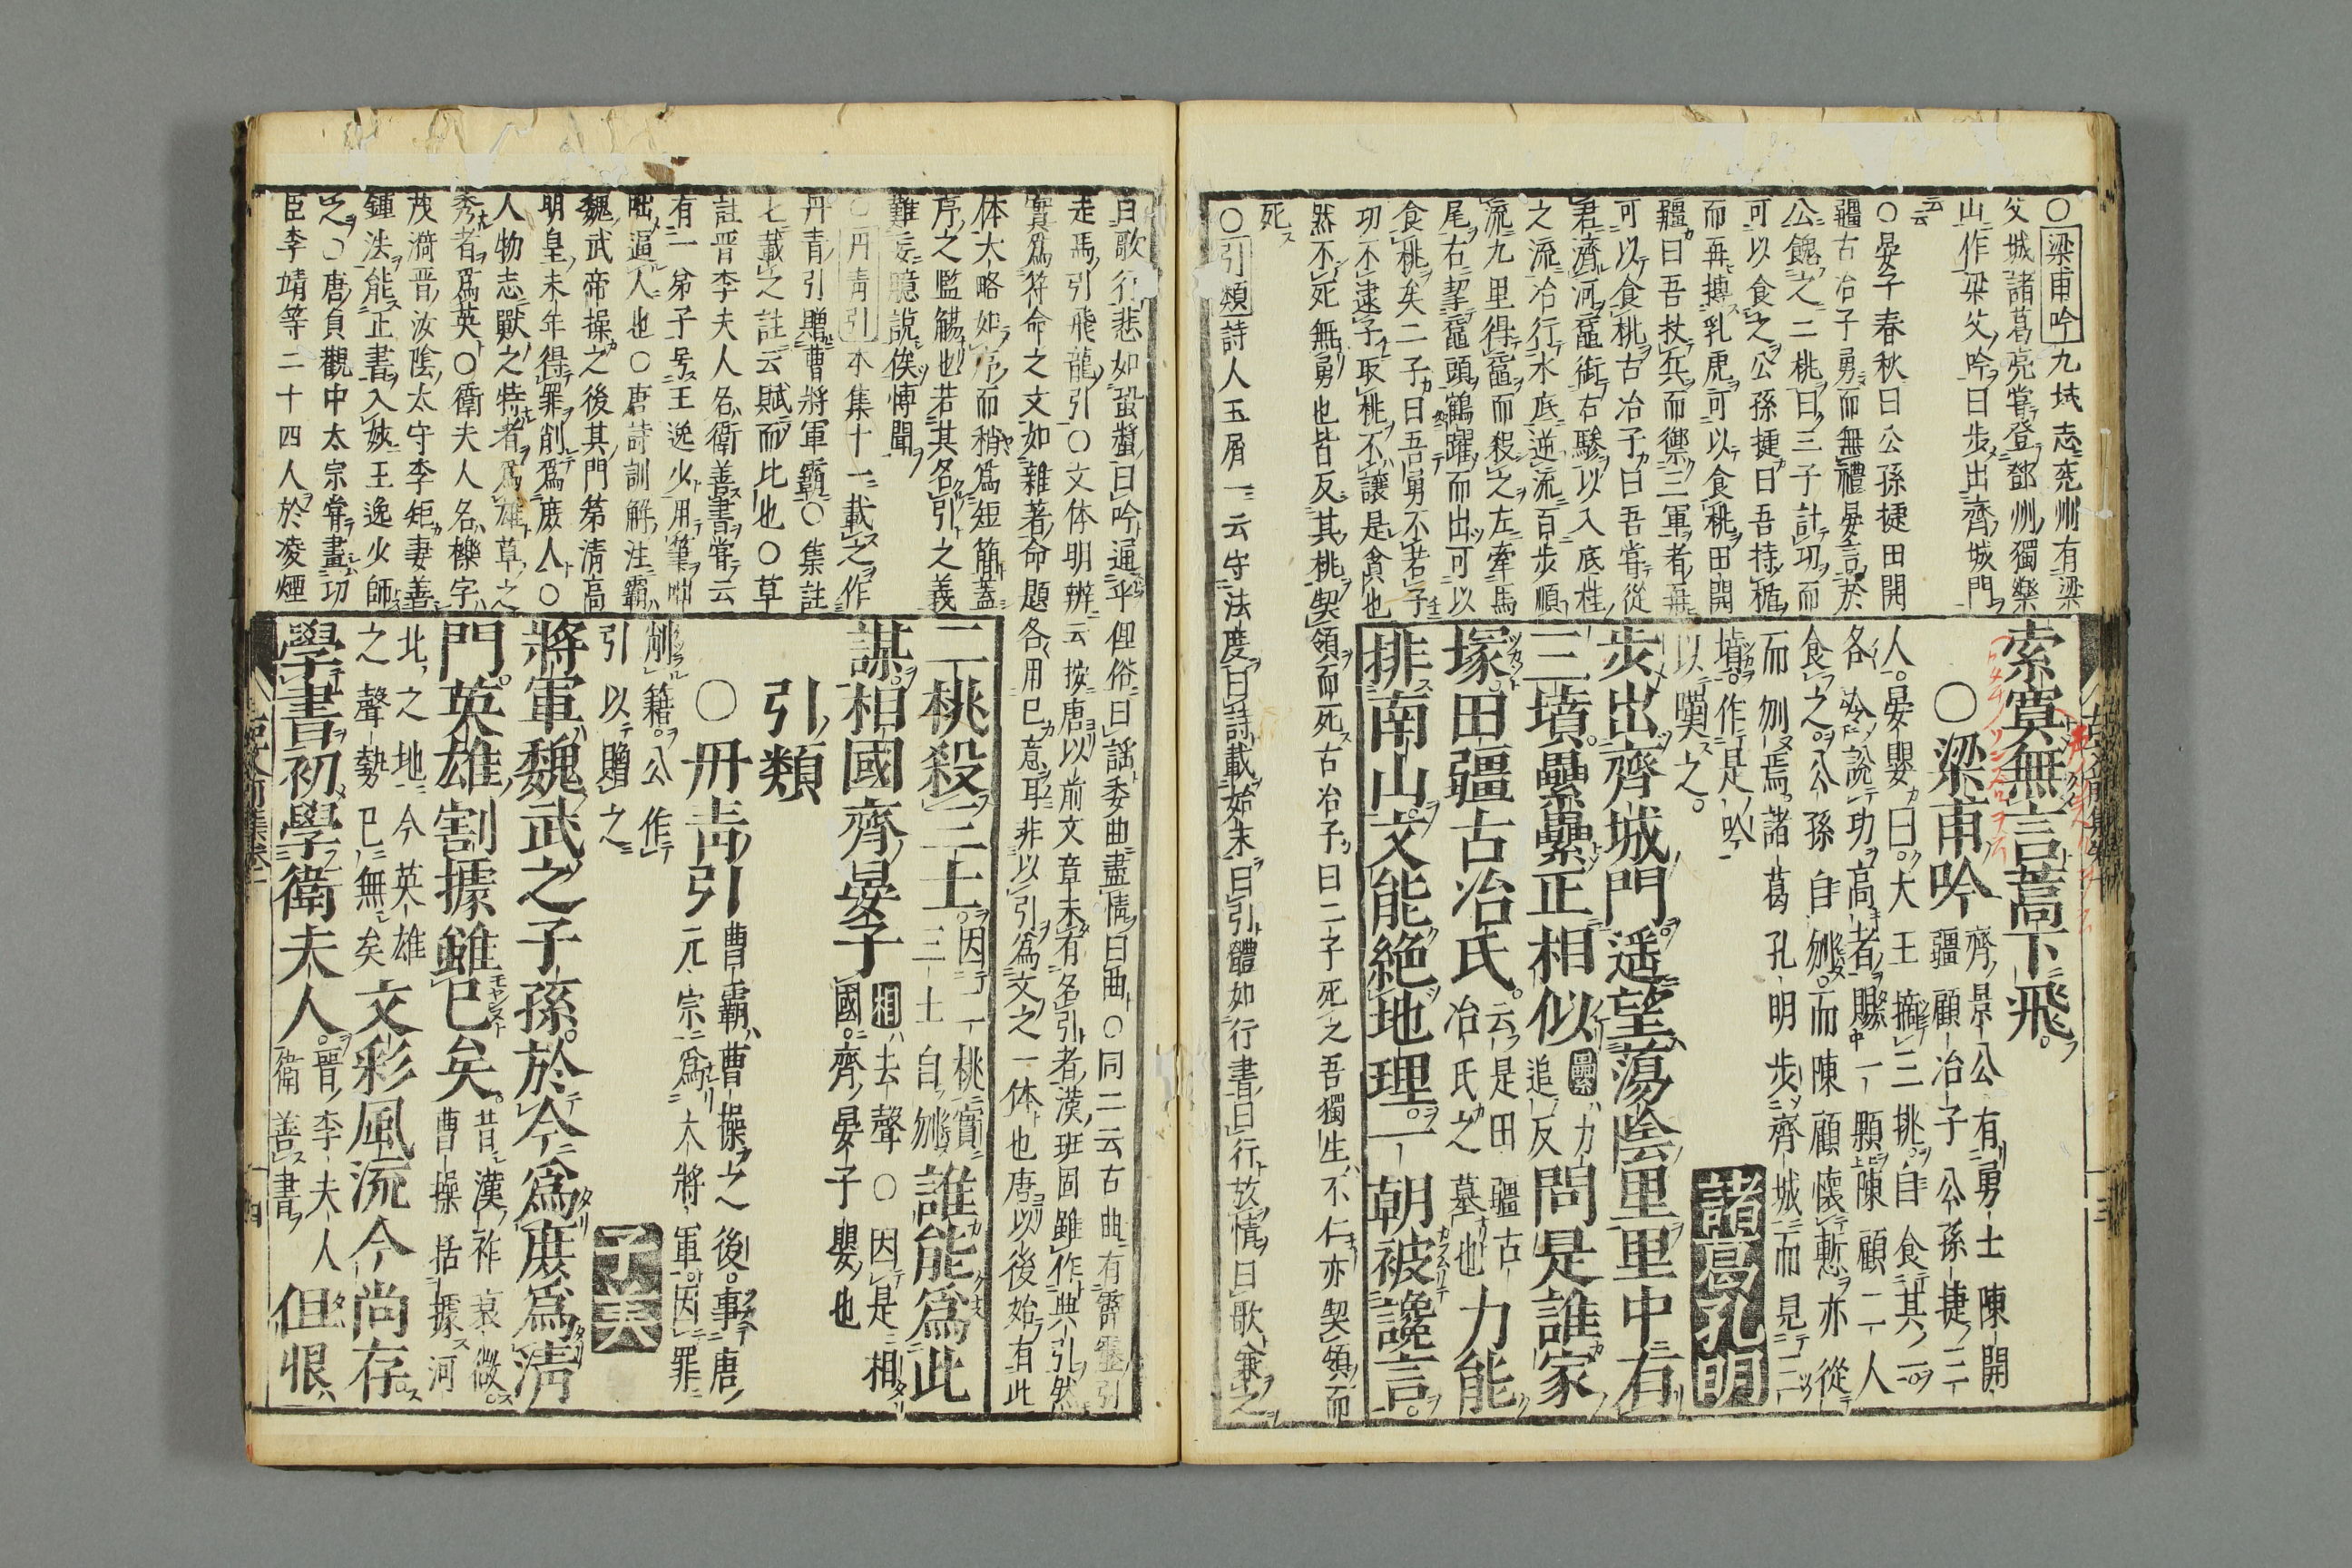 〇梁甫吟九域志兗州有梁
父城諸葛亮嘗登鄧州獨樂
山作梁父吟曰步出齊城門
云云
〇晏子春秋曰公孫捷田開
疆古冶子勇而無禮晏言於
公餽之二桃曰三子計功而
可以食之公孫捷曰吾持楯
而再搏乳虎可以食桃田開
疆曰吾杖兵而禦三軍者再
可以食桃古冶子曰吾嘗從
君濟河黿銜右驂以入底柱
之流冶行水底逆流百步順
流九里得黿而殺之左牽馬
尾右挈黿頭鶴躍而出可以
食桃矣二子曰吾勇不若子
功不逮子取桃不讓是貪也
然不死無勇也皆反其桃契領而死古冶子曰二子死之吾獨生不仁亦契領而
死
〇引類詩人玉屑一云守法度曰詩載始末曰引體如行書曰行放情曰歌兼之
索寞無言蒿下飛
〇梁甫吟
齊景公有勇士陳開
疆顧冶子公孫捷三
人晏嬰曰大王摘三桃自食其一
各令說功高者賜一顆陳顧二人
食之公孫自刎而陳顧懷慙亦從
而刎焉諸葛孔明步齊城而見三
墳作是吟
以嘆之
諸葛孔明
步出齊城門遥望蕩陰里里中有
三墳纍纍正相似纍力追反問是誰家
塚田疆古冶氏云是田疆古冶氏之墓也力能
排南山文能絶地理一朝被讒言
曰歌行悲如蛩螿曰吟通乎俚俗曰謡委曲盡情曰曲〇同二云古曲有霹靂引
走馬引飛龍引〇文体明辨云按唐以前文章未有名引者漢班固雖作典引然
實爲符命之文如雜著命題各用已意耳非以引爲文之一体也唐以後始有此
体大略如序而稍爲短簡蓋
序之濫觴也若其名引之義
難妄臆說俟博聞
〇丹青引本集十一載之作
丹青引贈曹將軍霸〇集註
七載之註云賦而比也〇草
註晋李夫人名衛善書嘗云
有一弟子号王逸少用筆咄
咄逼人也〇唐詩訓解注霸
魏武帝操之後其門第清高
明皇末年得罪削爲庶人〇
人物志獸之特者爲雄草之
秀者爲英〇衛夫人名櫟字
茂漪晋汝陰太守李矩妻善
鍾法能正書入妙王逸少師
之〇唐貞觀中太宗嘗畫功
臣李靖等二十四人於凌煙
二桃殺三士因二桃三士自刎誰能爲此
謀相國齊晏子相去聲〇因是相國齊晏子嬰也
引類
〇丹青引
曹霸曹操之後事唐
元宗爲大將軍因罪
削籍公作
引以贈之
子美
將軍魏武之子孫於今爲庶爲清
門英雄割據雖已矣昔漢祚衰微曹操括據河
北之地今英雄之聲勢已無矣文彩風流今尚存
學書初學衛夫人晋李夫人衛善書但恨